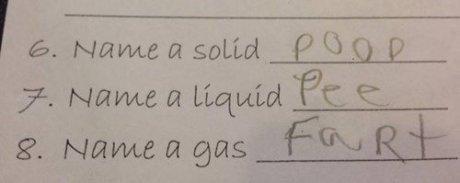 6. Name a solid POOP
7. Name a liquid Pee
8. Name a gas FaRt